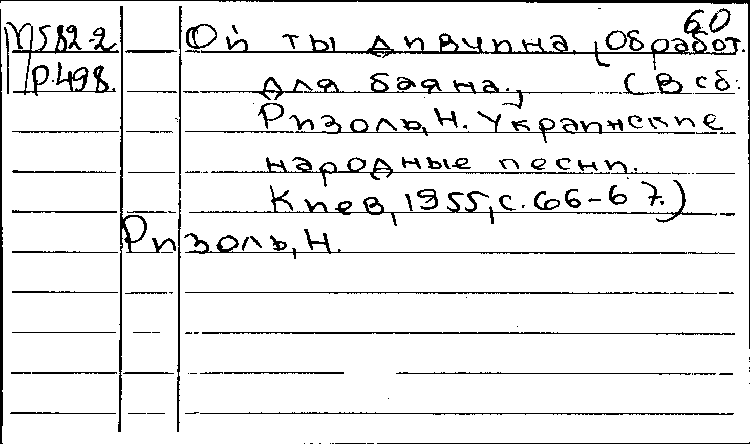 60
М582-2 Ой ты дивчина. [Обработ.
Р.498. для баяна., (В сб:
Ризоль, Н. Украинские
народные песни.
Киев, 1955, с. 66-67.)
Ризоль, Н.